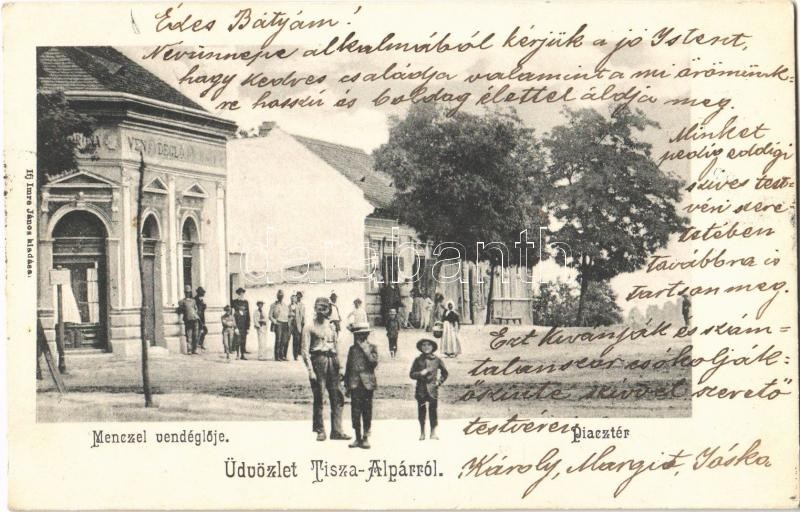 Édes Bátyám!
Nevünnepe alkalmából kérjük a jó Istent,
hogy kedves családja valamint a mi örömünk-
re hosszú és boldog élettel áldja meg.
Minket
pedig eddigi
szíves test-
véri szere-
tetében
továbbra is
tartson meg.
Ezt kívánjuk és szám-
talanszor csókolják
őszinte szívvel szerető
testvérei
Károly, Margit, Jóska
VENDÉGLŐ
Ifj Imre János kiadása.
darabanth
Menczel vendéglője.
Piacztér
Üdvözlet Tisza-Alpárról.